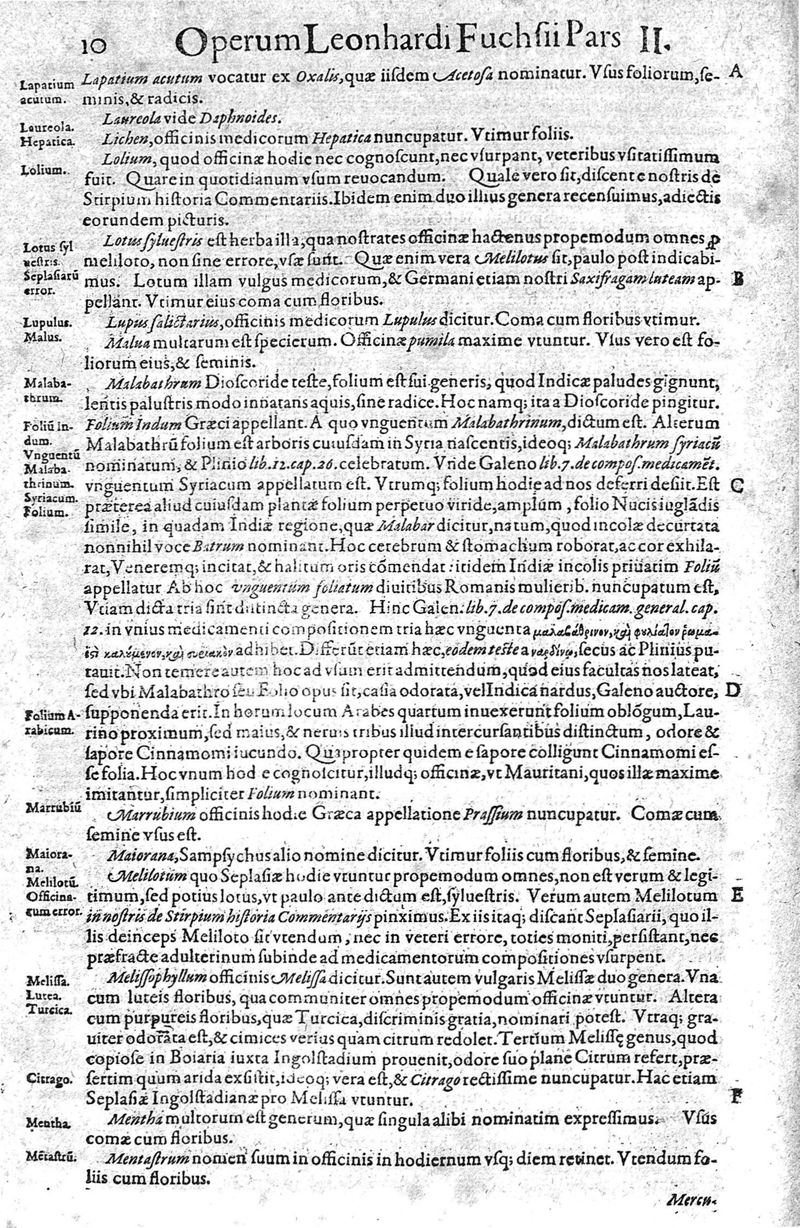 10 Operum Leonhardi Fuchſii Pars II.
Lapatium acutum.
Lapatium acutum vocatur ex Oxalis, quæ iiſdem Acetoſa nominatur. Vſus foliorum, ſe- A
minis, & radicis.
Laureola.
Laureola vide Daphnoides.
Hepatica.
Lichen, officinis medicorum Hepatica nuncupatur. Vtimur foliis.
Lolium.
Lolium, quod officinæ hodie nec cognoſcunt, nec vſurpant, veteribus vſitatiſſimum
fuit. Quare in quotidianum vſum reuocandum. Quale vero ſit, diſcent e noſtris de
Stirpium hiſtoria Commentariis. Ibidem enim duo illius genera recenſuimus, adiectis
eorundem picturis.
Lotus ſyl
ueſtris.
Seplaſiarū
error.
Lotus ſylueſtris eſt herba illa, qua noſtrates officinæ hactenus propemodum omnes ꝓ
meliloto, non ſine errore, vſæ ſunt. Quæ enim vera Melilotus ſit, paulo poſt indicabi-
mus. Lotum illam vulgus medicorum, & Germani etiam noſtri Saxifragam luteam ap- B
pellant. Vtimur eius coma cum floribus.
Lupulus.
Lupus ſalictarius, officinis medicorum Lupulus dicitur. Coma cum floribus vtimur.
Malus.
Malua multarum eſt ſpecierum. Officinæ pumila maxime vtuntur. Vſus vero eſt fo-
liorum eius, & ſeminis.
Malaba-
thrum.
Malabathrum Dioſcoride teſte, folium eſt ſui generis, quod Indicæ paludes gignunt,
lentis paluſtris modo innatans aquis, ſine radice. Hoc namq; ita a Dioſcoride pingitur.
Foliū in-
dum.
Vnguentū
Malaba-
thrinum.
Syriacum.
Folium.
Folium Indum Græci appellant. A quo vnguentum Malabathrinum, dictum eſt. Alterum
Malabathrū folium eſt arboris cuiuſdam in Syria naſcentis, ideoq; Malabathrum ſyriacū
nominatum, & Plinio lib. 12. cap. 26. celebratum. Vnde Galeno lib. 7. de compoſ. medicamēt.
vnguentum Syriacum appellatum eſt. Vtrumq; folium hodie ad nos deferri deſiit. Eſt C
præterea aliud cuiuſdam plantæ folium perpetuo viride, amplum, folio Nucis iuglādis
ſimile, in quadam Indiæ regione, quæ Malabar dicitur, natum, quod incolæ decurtata
nonnihil voce Batrum nominant. Hoc cerebrum & ſtomachum roborat, ac cor exhila-
rat, Veneremq; incitat, & halitum oris cōmendat: itidem Indiæ incolis priuatim Foliū
appellatur Ab hoc vnguentūm foliatum diuitibus Romanis mulierib. nuncupatum eſt,
Vt iam dicta tria ſint diſtincta genera. Hinc Galen. lib. 7. de compoſ. medicam. general. cap.
12. in vnius medicamenti compoſitionem tria hæc vnguenta μαλαβάθρινον, καὶ φυλίατον ῥωμα-
ϊϛὶ καλούμενον, καὶ συριακὸν adhibet. Differūt etiam hæc, eodem teſte a ναρδίνῳ, ſecus ac Plinius pu-
tauit. Non temere autem hoc ad vſum erit admittendum, quod eius facultas nos lateat,
ſed vbi Malabathro ſeu Folio opus ſit, caſia odorata, vel Indica nardus, Galeno auctore, D
Folium A-
rabicum.
ſupponenda erit. In horum locum Arabes quartum inuexerunt folium oblōgum, Lau-
rino proximum, ſed maius, & neruis tribus illud intercurſantibus diſtinctum, odore &
ſapore Cinnamomi iucundo. Quapropter quidem e ſapore colligunt Cinnamomi eſ-
ſe folia. Hoc vnum hodie cognoſcitur, illudq; officinæ, vt Mauritani, quos illæ maxime
imitantur, ſimpliciter Folium nominant.
Marrubiū
Marrubium officinis hodie Græca appellatione Praſſium nuncupatur. Comæ cum
ſemine vſus eſt.
Maiora-
na.
Maiorana, Sampſychus alio nomine dicitur. Vtimur foliis cum floribus, & ſemine.
Melilotū.
Officina-
rum error.
Melilotum quo Seplaſiæ hodie vtuntur propemodum omnes, non eſt verum & legi-
timum, ſed potius lotus, vt paulo ante dictum eſt, ſylueſtris. Verum autem Melilotum E
in noſtris de Stirpium hiſtoria Commentarijs pinximus. Ex iis itaq; diſcant Seplaſiarii, quo il-
lis deinceps Meliloto ſit vtendum, nec in veteri errore, toties moniti, perſiſtant, nec
præfracte adulterinum ſubinde ad medicamentorum compoſitiones vſurpent.
Meliſſa.
Lutea.
Turcica.
Meliſſophyllum officinis Meliſſa dicitur. Sunt autem vulgaris Meliſſæ duo genera. Vna
cum luteis floribus, qua communiter omnes propemodum officinæ vtuntur. Altera
cum purpureis floribus, quæ Turcica, diſcriminis gratia, nominari poteſt. Vtraq; gra-
uiter odorata eſt, & cimices verius quam citrum redolet. Tertium Meliſſę genus, quod
copioſe in Boiaria iuxta Ingolſtadium prouenit, odore ſuo plane Citrum refert, præ-
Citrago.
ſertim quum arida exſiſtit, ideoq; vera eſt, & Citrago rectiſſime nuncupatur. Hac etiam
Seplaſiæ Ingolſtadianæ pro Meliſſa vtuntur. F
Mentha.
Mentha multorum eſt generum, quæ ſingula alibi nominatim expreſſimus. Vſus
comæ cum floribus.
Mētaſtrū.
Mentaſtrum nomen ſuum in officinis in hodiernum vſq; diem retinet. Vtendum fo-
liis cum floribus.
Mercu-